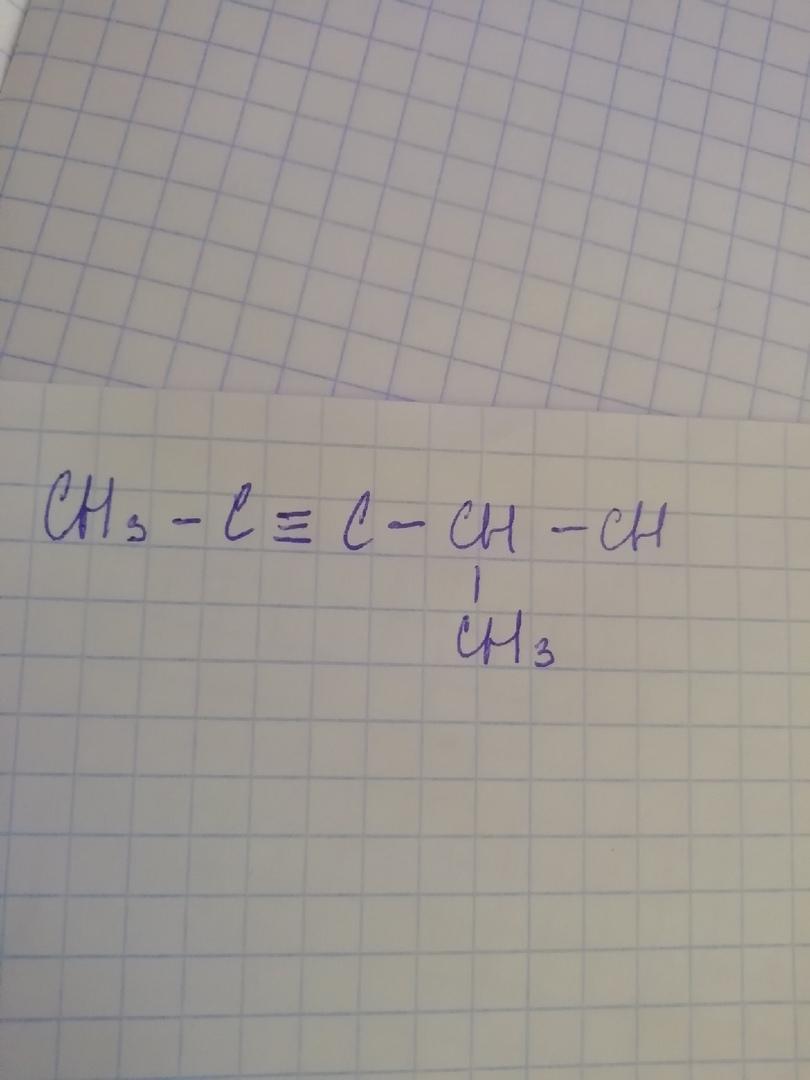 CH₃ - C ≡ C - CH - CH
|
CH₃